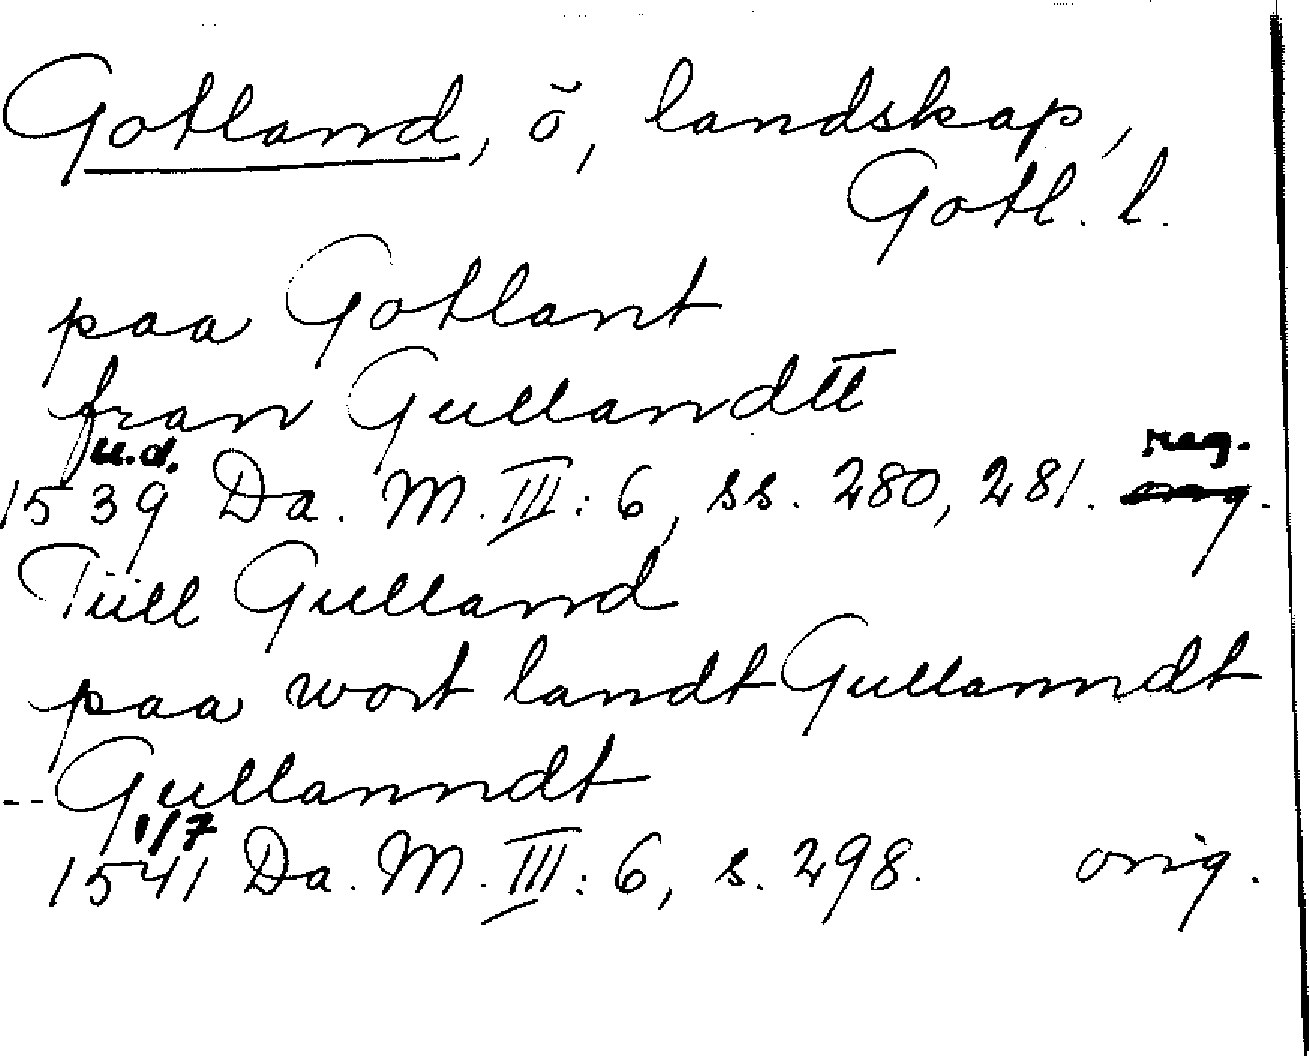 Gotland, ö, landskap,
Gotl. l.
paa Gotlant
fran Gullandtt
u.d. reg.
1539 Da. M. III: 6, ss. 280, 281. orig.
Tiill Gulland
paa wort landt Gullanndt
-- Gullanndt
1/7
1541 Da. M. III: 6, s. 298. orig.